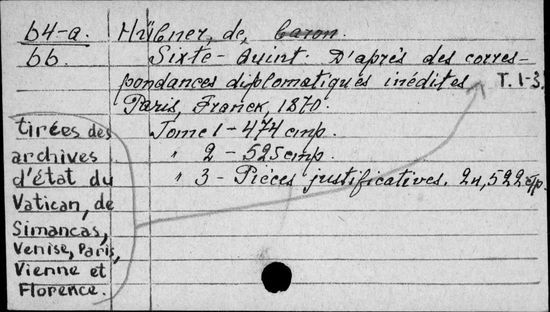 64-a. Hübner, de, baron.
66. Sixte-Quint. D'après des corres-
pondances diplomatiques inédites T. 1-3.
Paris, Franck, 1870.
Tome 1 - 474 стр.
" 2 - 525 стр.
" 3 - Pièces justificatives. 2н, 522 стр.
tirées des
archives
d'état du
Vatican, de
Simancas,
Venise, Paris,
Vienne et
Florence.